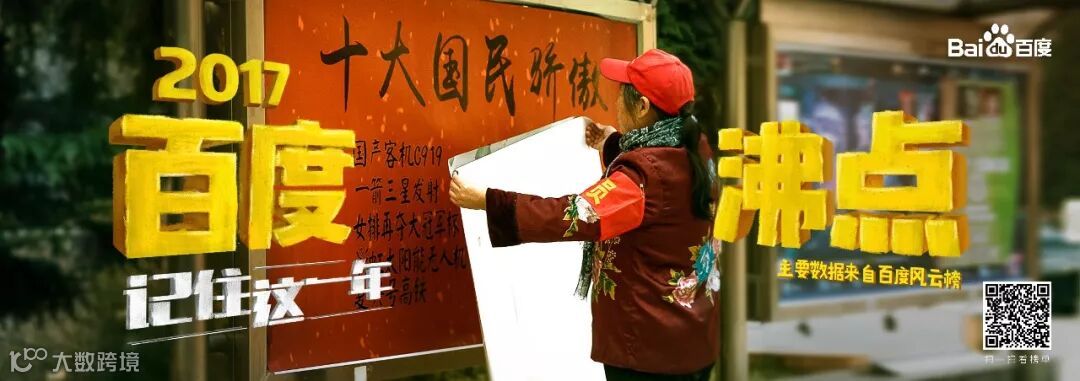 Bai百度
十大国民骄傲
2017
百度沸点
记住这一年
国产客机C919
一箭三星发射
女排再夺大冠军杯
太阳能无人机
号高铁
员
主要数据来自百度风云榜
扫一扫看榜单
大数跨境